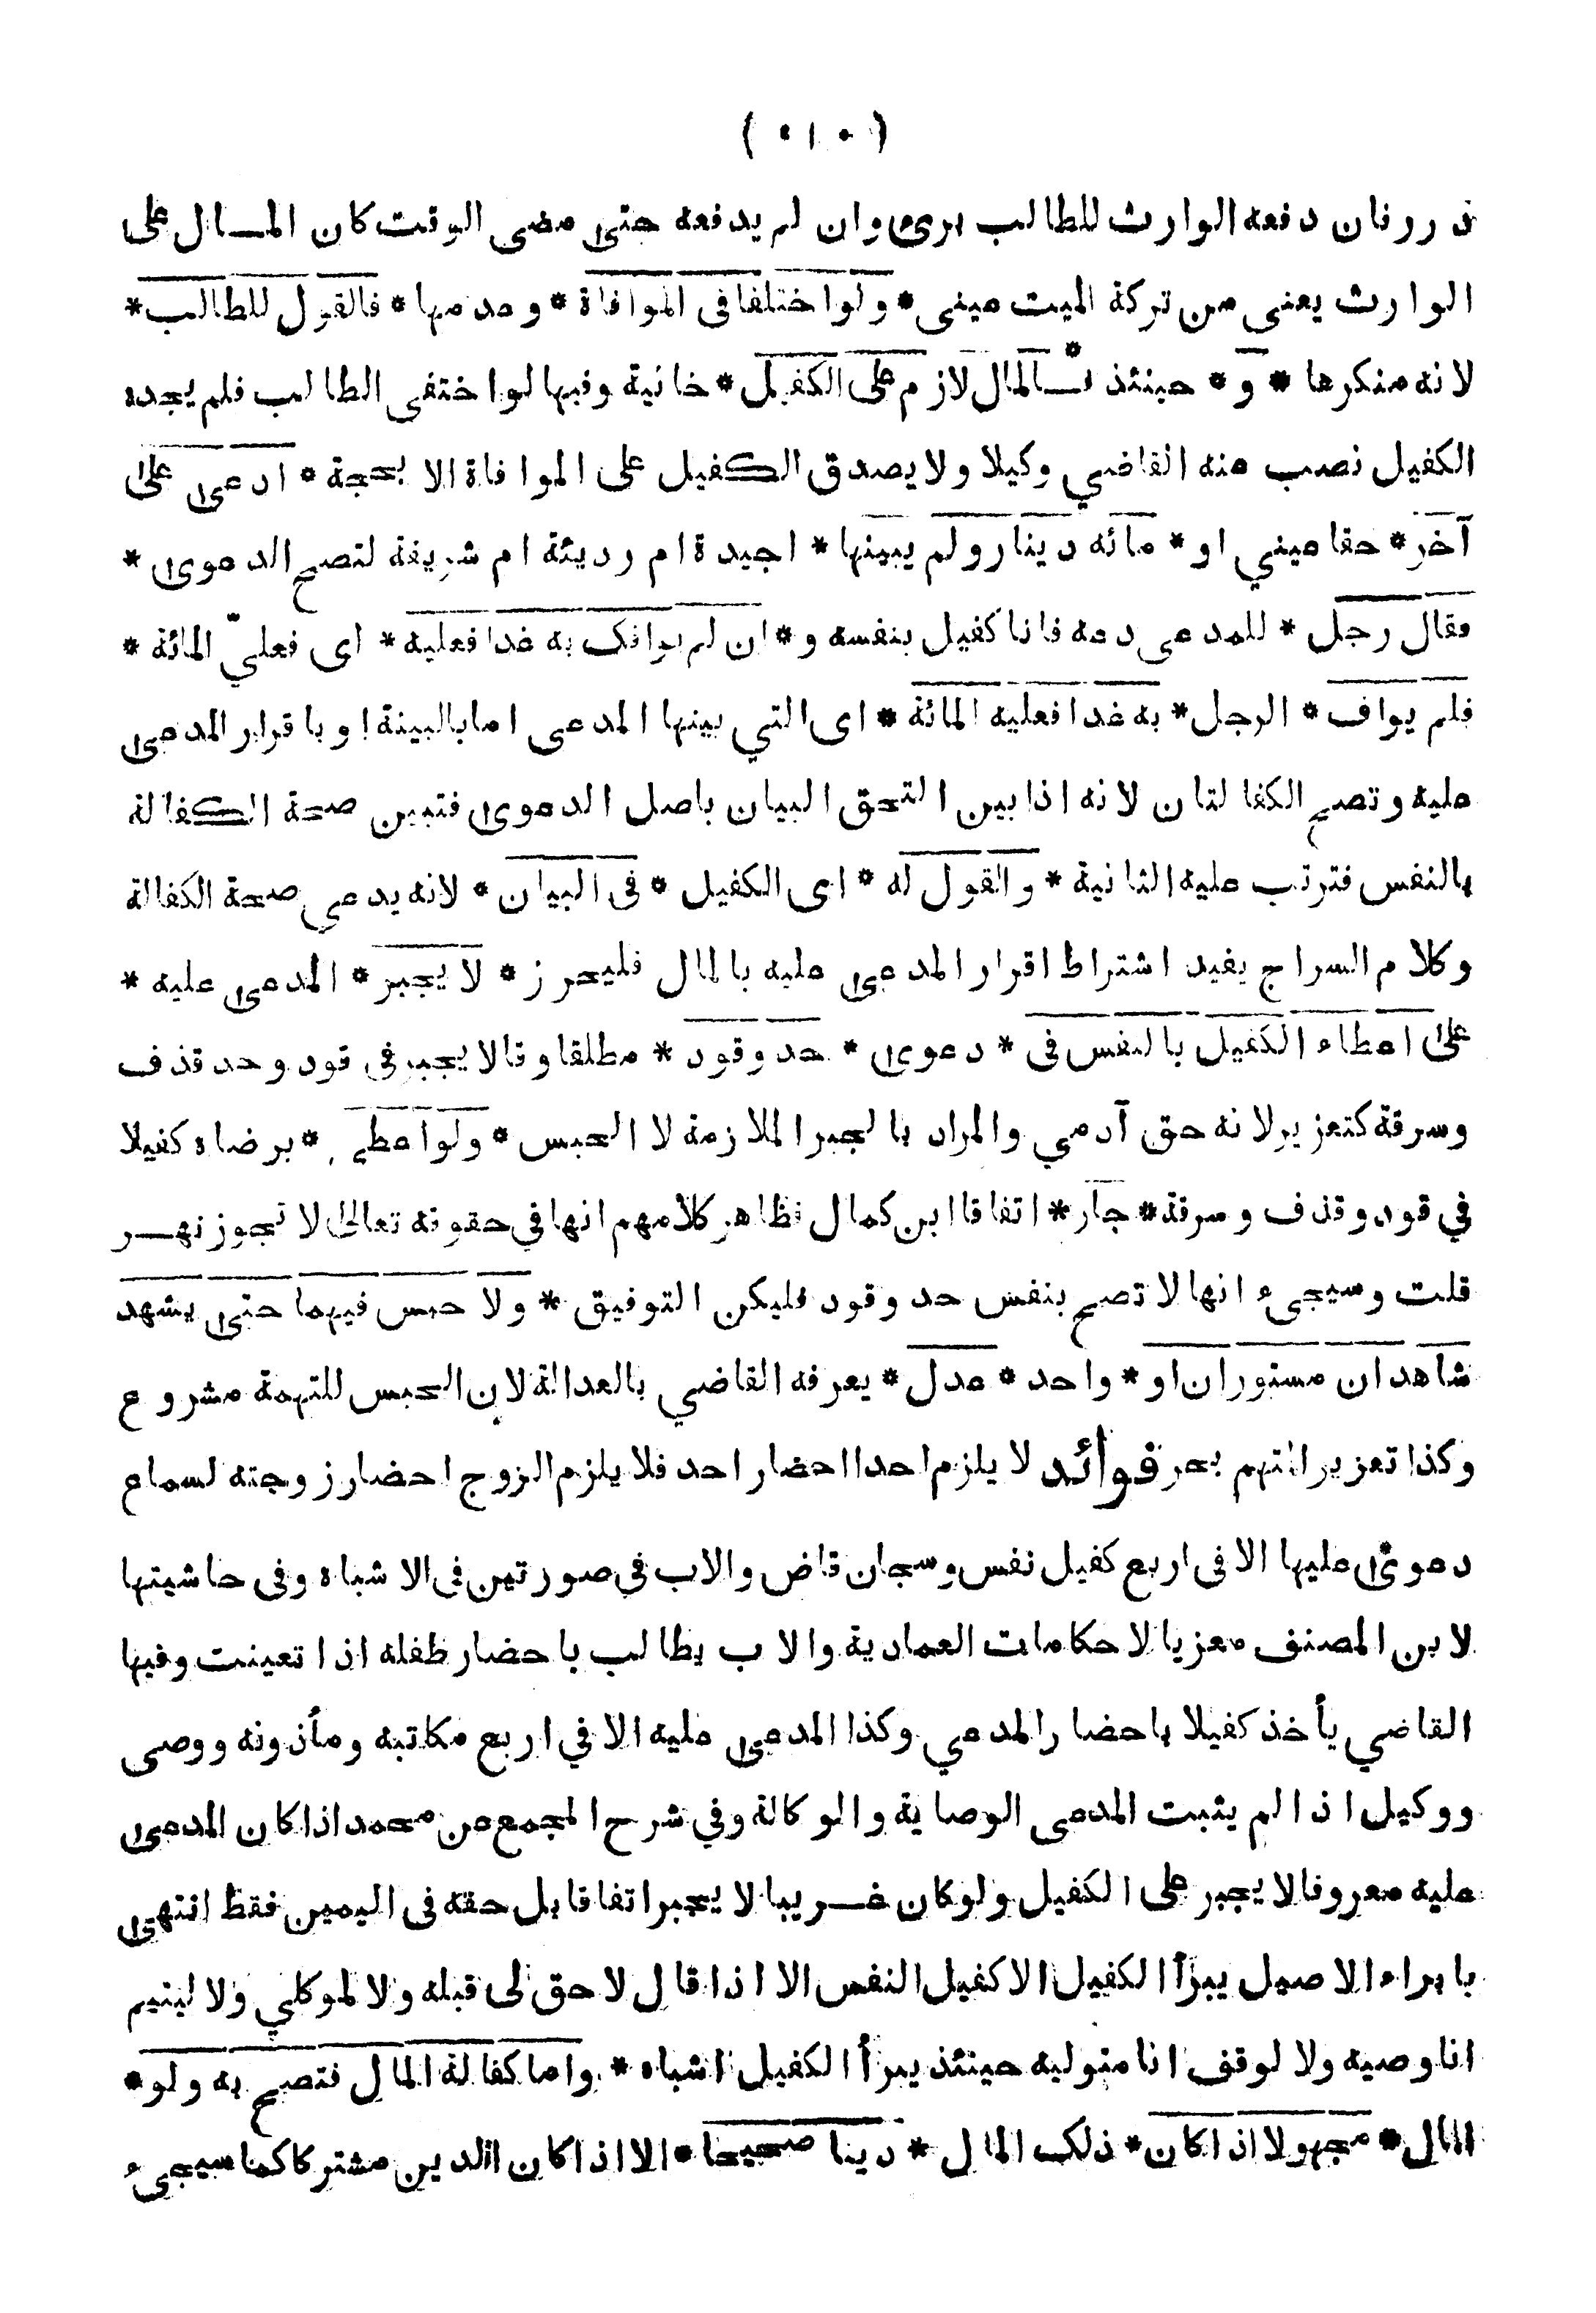 ( ٥١٠ )
درر فان دفعه الوارث للطالب برئ وان لم يدفعه حتى مضى الوقت كان المال على
الوارث يعنى من تركة الميت عينى * ولو اختلفا فى الموافاة * وعدمها * فالقول للطالب *
لانه منكرها * و * حينئذ فالمال لازم على الكفيل * خانية وفيها لو اختفى الطالب فلم يجده
الكفيل نصب عنه القاضي وكيلا ولا يصدق الكفيل على الموافاة الا بحجة * ادعى على
آخر * حقا عيني او * مائه دينار ولم يبينها * اجيدة ام رديئة ام شريفة لتصح الدعوى *
فقال رجل * للمدعى دعه فانا كفيل بنفسه و * ان لم يوافك به غدا فعليه * اى فعليّ المائة *
فلم يواف * الرجل * به غدا فعليه المائة * اى التي بينها المدعى اما بالبينة او باقرار المدعى
عليه وتصح الكفالتان لانه اذا بين التحق البيان باصل الدعوى فتبين صحة الكفالة
بالنفس فترتب عليه الثانية * والقول له * اى الكفيل * فى البيان * لانه يدعى صحة الكفالة
وكلام السراج يفيد اشتراط اقرار المدعى عليه بالمال فليحرز * لا يجبر * المدعى عليه *
على اعطاء الكفيل بالنفس فى * دعوى * حد وقود * مطلقا وقالا يجبر فى قود وحد قذف
وسرقة كتعزير لانه حق آدمي والمراد بالجبر الملازمة لا الحبس * ولو اعطى * برضاه كفيلا
في قود وقذف وسرقة * جاز * اتفاقا ابن كمال فظاهر كلامهم انها في حقوقه تعالى لا تجوز نهر
قلت وسيجىء انها لا تصح بنفس حد وقود فليكن التوفيق * ولا حبس فيهما حتى يشهد
شاهدان مستوران او * واحد * عدل * يعرفه القاضي بالعدالة لان الحبس للتهمة مشروع
وكذا تعزير المتهم بحر فوائد لا يلزم احدا احضار احد فلا يلزم الزوج احضار زوجته لسماع
دعوى عليها الا فى اربع كفيل نفس وسجان قاض والاب في صورتين فى الاشباه وفى حاشيتها
لابن المصنف معزيا لاحكامات العمادية والاب يطالب باحضار طفله اذا تعينت وفيها
القاضي يأخذ كفيلا باحضار المدعي وكذا المدعى عليه الا في اربع مكاتبه ومأذونه ووصى
ووكيل اذا لم يثبت المدعى الوصاية والوكالة وفي شرح المجمع عن محمد اذا كان المدعى
عليه معروفا لا يجبر على الكفيل ولو كان غريبا لا يجبر اتفاقا بل حقه فى اليمين فقط انتهى
بابراء الاصيل يبرأ الكفيل الا كفيل النفس الا اذا قال لا حق لى قبله ولا لموكلي ولا ليتيم
انا وصيه ولا لوقف انا متوليه حينئذ يبرأ الكفيل اشباه * واما كفالة المال فتصح به ولو *
المال * مجهولا اذا كان * ذلك المال * دينا صحيحا * الا اذا كان الدين مشتركا كما سيجىء